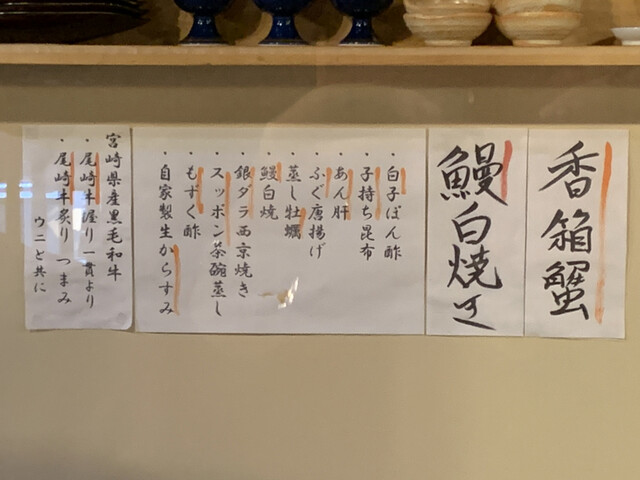 香箱蟹
鰻白焼き
・白子ぽん酢
・子持ち昆布
・あん肝
・ふぐ唐揚げ
・蒸し牡蠣
・鰻白焼
・銀ダラ西京焼き
・スッポン茶碗蒸し
・もずく酢
・自家製生からすみ
宮崎県産黒毛和牛
・尾崎牛握り一貫より
・尾崎牛炙り つまみ
ウニと共に